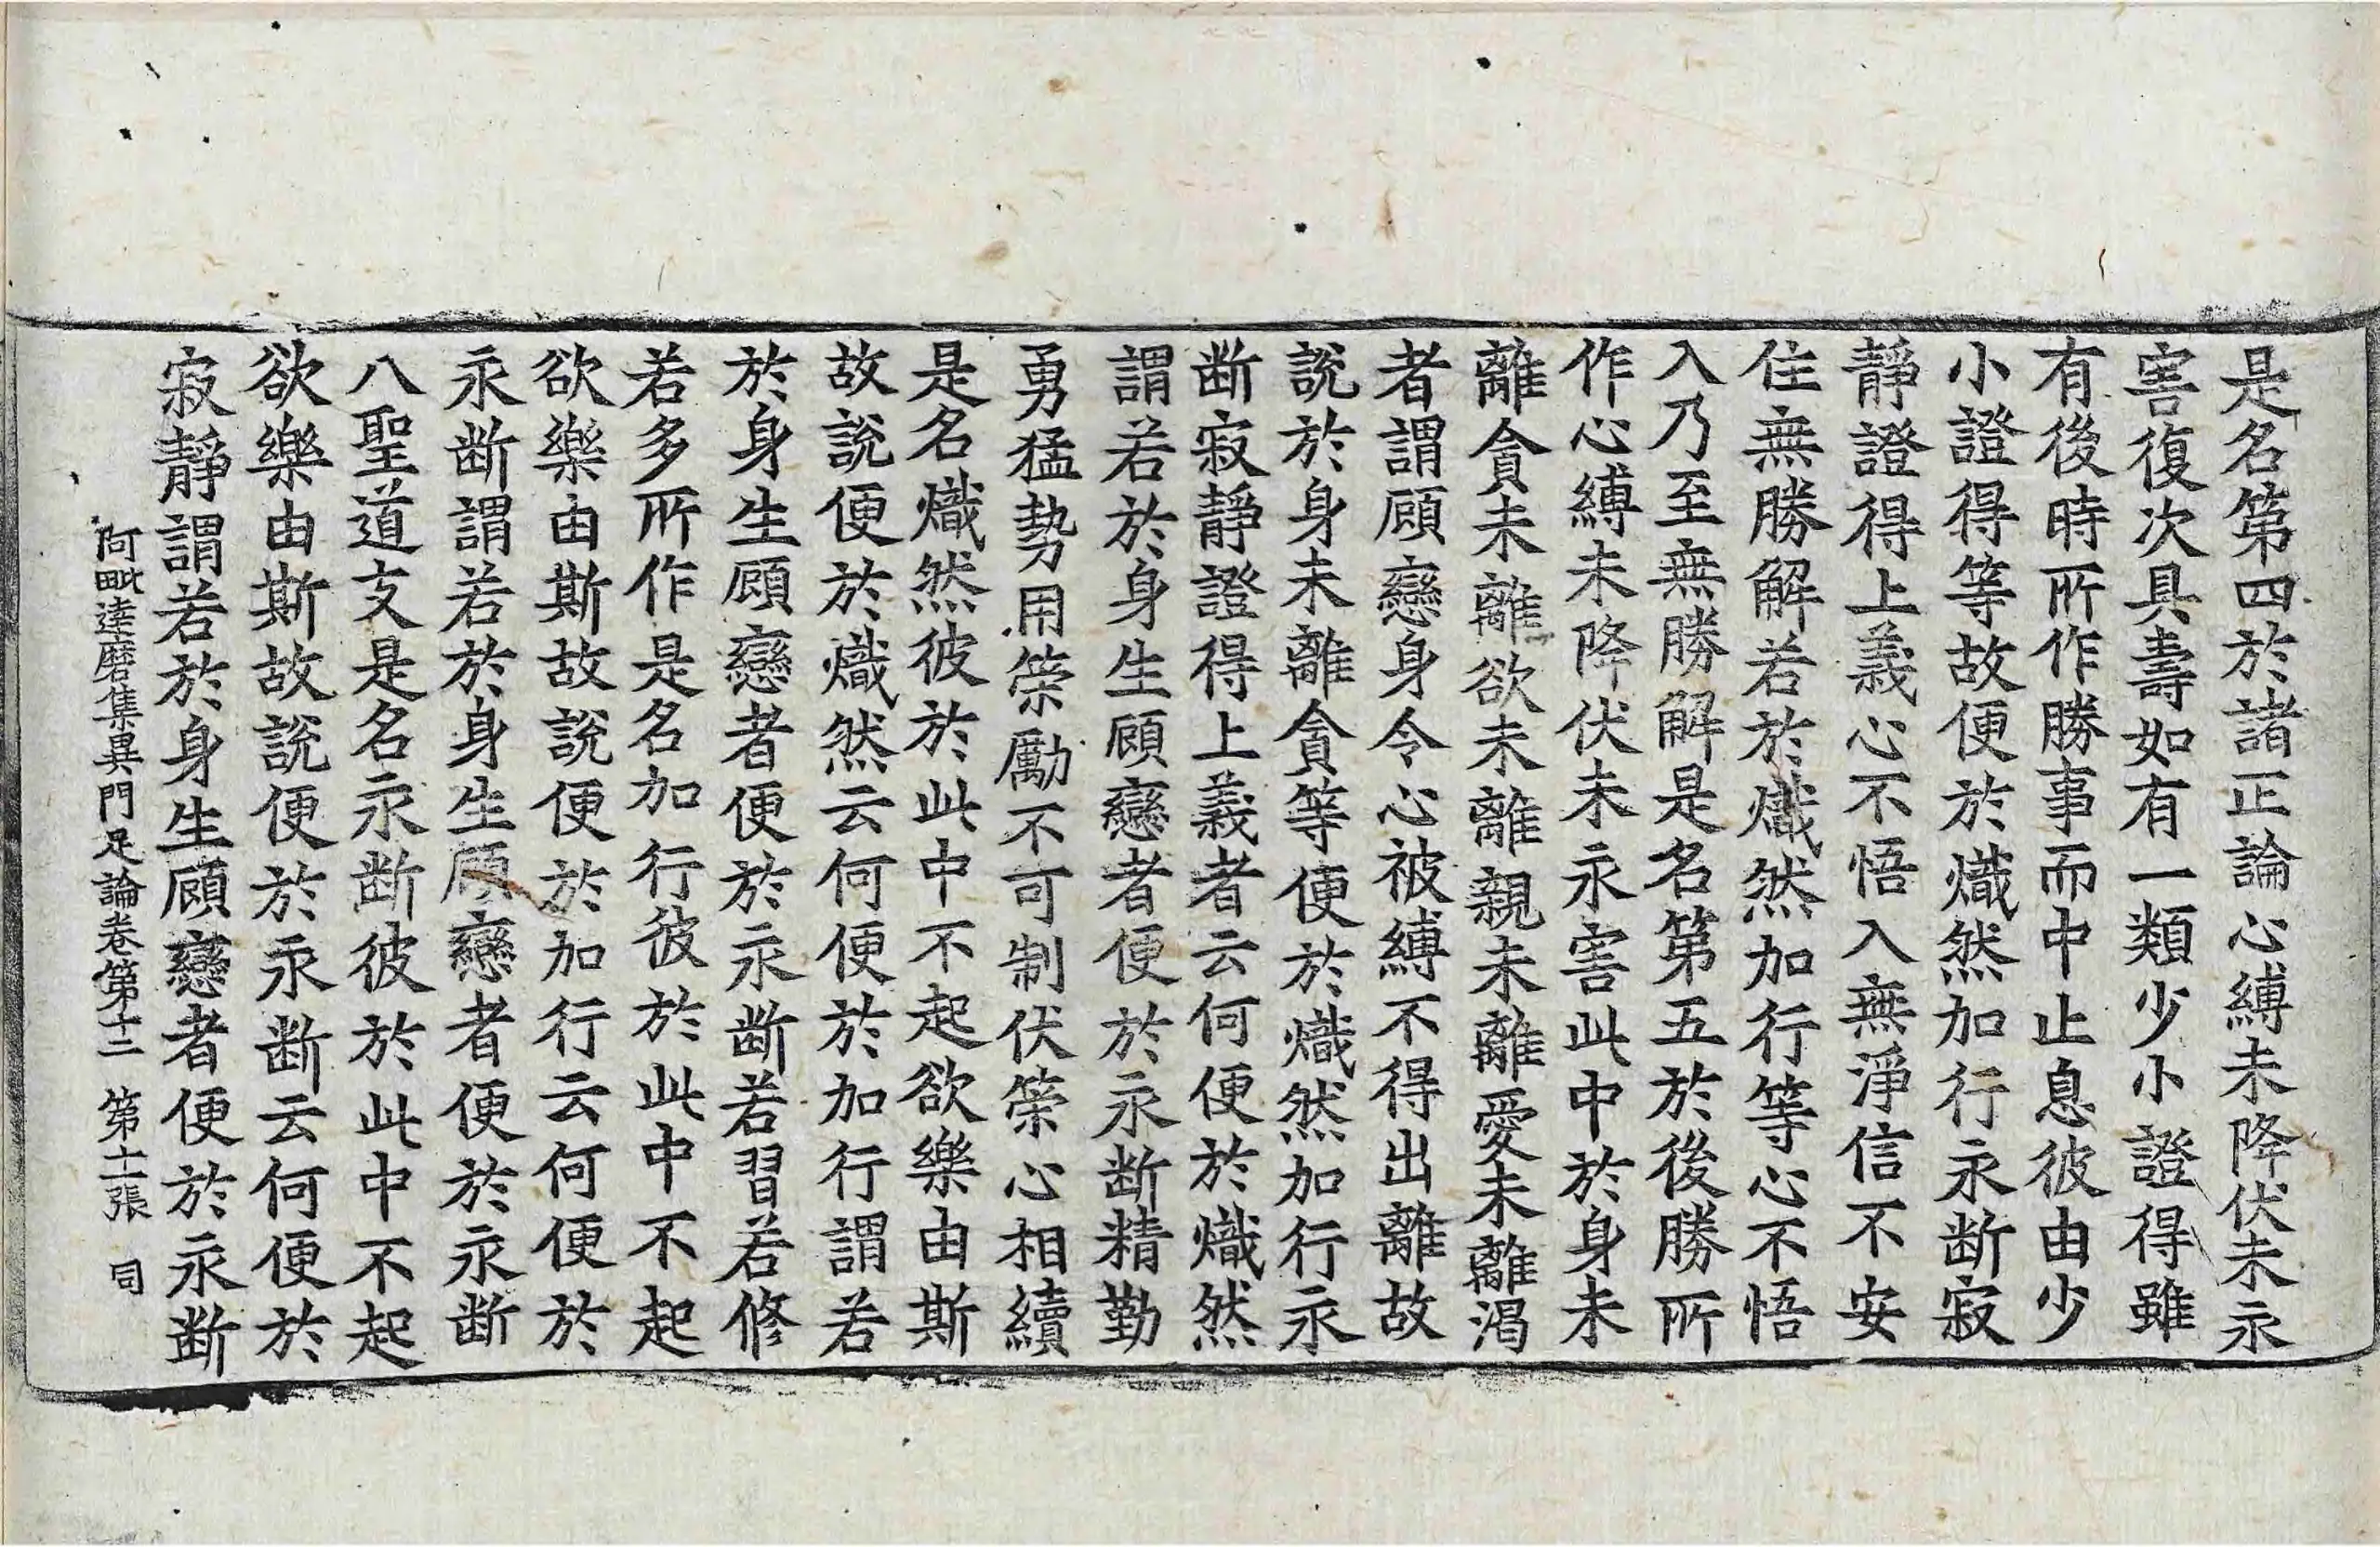 是名第四於諸正論心縛未降伏未永
害復次具壽如有一類少小證得雖
有後時所作勝事而中止息彼由少
小證得等故便於熾然加行永断寂
靜證得上義心不悟入無淨信不安
住無勝解若於熾然加行等心不悟
入乃至無勝解是名第五於後勝所
作心縛未降伏未永害此中於身未
離貪未離欲未離親未離愛未離渴
者謂顧戀身令心被縛不得出離故
說於身未離貪等便於熾然加行永
断寂靜證得上義者云何便於熾然
謂若於身生顧戀者便於永断精勤
勇猛勢用䇿勵不可制伏䇿心相續
是名熾然彼於此中不起欲樂由斯
故說便於熾然云何便於加行謂若
於身生顧戀者便於永断若習若修
若多所作是名加行彼於此中不起
欲樂由斯故說便於加行云何便於
永断謂若於身生顧戀者便於永断
八聖道支是名永断彼於此中不起
欲樂由斯故說便於永断云何便於
寂靜謂若於身生顧戀者便於永断
阿毗達磨集異門足論卷第十二 第十一張 同